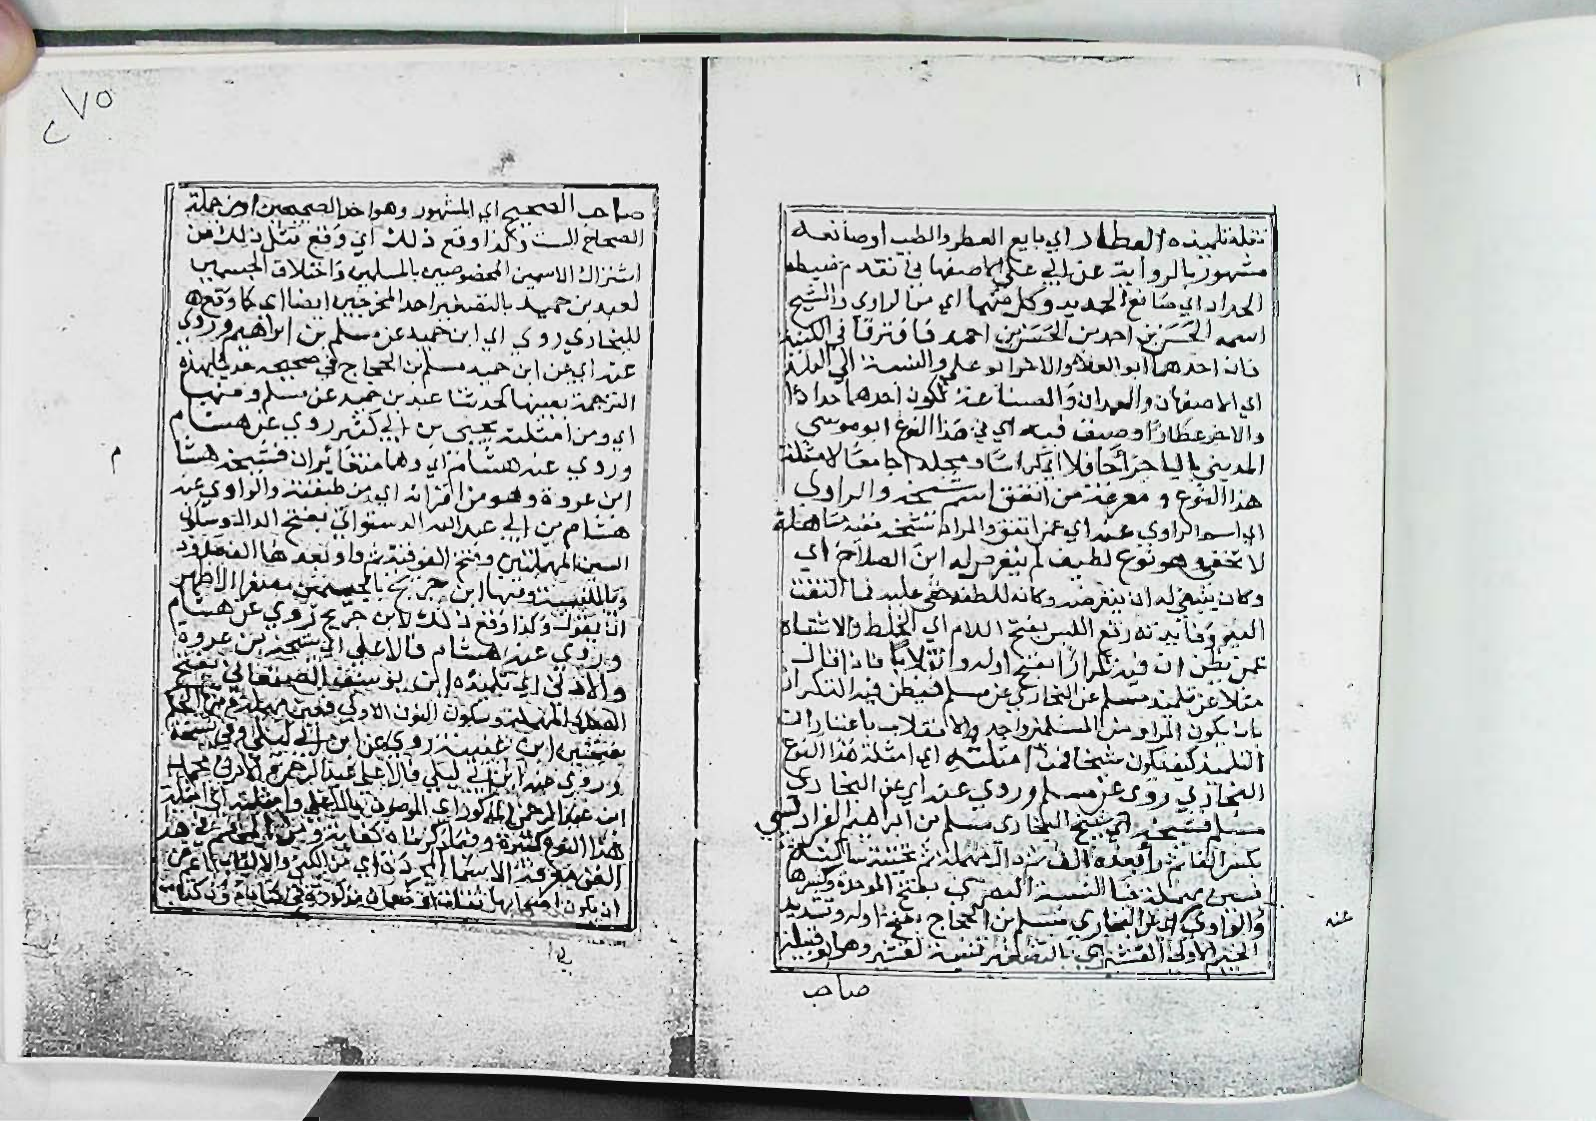 نقله تلميذه العطار اي بايع العطر والطيب او صانعه
مشهور بالرواية عن ابي علي الاصفهاني تقدم ضبطه
الحداد اي صانع الحديد وكل منهما اي من الراوي والشيخ
اسمه الحسن بن احمد بن الحسن بن احمد فافترقا في الكنية
فان احدهما ابو العلا والاخر ابو علي والنسبة الي البلد
اي الاصفهان والهمدان والصناعة لكون احدهما حدادا
والاخر عطارا وصنف فيه اي في هذا النوع ابو موسي
المديني باليا جزأ حافلا اي كراسا ومجلدا جامعا لامثلة
هذا النوع و معرفة من اتفق اسم شيخه والراوي
اي اسم الراوي عنه اي عمن اتفق والمراد شيخه ففيه مساهلة
لا تخفى وهو نوع لطيف لم يتعرض له ابن الصلاح اي
وكان ينبغي له ان يتعرض وكانه للطفه خفي عليه فما التفت
اليه وفايدته رفع اللبس بفتح اللام اي الخلط والاشتباه
عمن يظن ان فيه تكرارا بفتح اوله وانقلابا فاذا قال
مثلا عن تلميذ مسلم عن البخاري عن مسلم فيظن فيه التكرار
بان يكون المراد من المسلمين واحد والانقلاب باعتبار ان
التلميذ كيف يكون شيخا فمن امثلته اي امثلة هذا النوع
البخاري روى عن مسلم وروي عنه اي عن البخاري
مسلم فشيخه اي شيخ البخاري مسلم بن ابراهيم الفراديسي
بكسر الفا ثم را بعده الف ثم دال مهملة ثم تحتية ساكنة
فسين مهملة فيا النسبة البصري بفتح الموحدة وكسرها
والراوي عن البخاري مسلم بن الحجاج بفتح اوله وتشديد
الجيم الاولى القشيري بالتصغير نسبة لقشير وهو ابو قبيلة
صاحب
عنه
٢٧٥
صاحب الصحيح اي المشهور وهو احد الصحيحين او من جملة
الصحاح الست وكذا وقع ذلك اي وقع مثل ذلك من
اشتراك الاسمين المخصوصين بالمسلمين واختلاف الجنسين
لعبد بن حميد بالتصغير احد المخرجين ايضا اي كما وقع
للبخاري روي اي ابن حميد عن مسلم بن ابراهيم وروي
عنه اي عن ابن حميد مسلم بن الحجاج في صحيحه حديثا بهذه
الترجمة بعينها حدثنا عبد بن حميد عن مسلم ومنها
اي ومن امثلته يحيى بن ابي كثير روي عن هشام
وروي عنه هشام اي وهما متغايران فشيخه هشام
ابن عروة وهو من اقرانه اي من طبقته والراوي عنه
هشام بن ابي عبد الله الدستوائي بفتح الدال وسكون
السين المهملتين وفتح الفوقية ثم واو بعدها الف ممدود
وبا النسبة ومنها ابن جريج بالجيمين مصغرا الاظهر
ان يقول وكذا وقع ذلك لابن جريج روي عن هشام
وروي عنه هشام فالاعلى اي شيخه بن عروة
والادنى اي تلميذه ابن يوسف الصنعاني بفتح
الصاد المهملة وسكون النون الاولى فعين مهملة ومنها الحكم
بفتحتين ابن عتيبة روي عن ابن ابي ليلى وفي نسخة
وروي عنه ابن ابي ليلى فالاعلى عبد الرحمن والادنى محمد
ابن عبد الرحمن المذكور اي الموصوف بالاعلى وامثلته اي امثلة
هذا النوع كثيرة وفيما ذكرناه كفاية ومن المهم في هذا
الفن معرفة الاسما المجردة اي عن الكنى والالقاب اعم من
ان يكون اصحابها ثقات او ضعفا مذكورة في كتاب دون كتاب
م